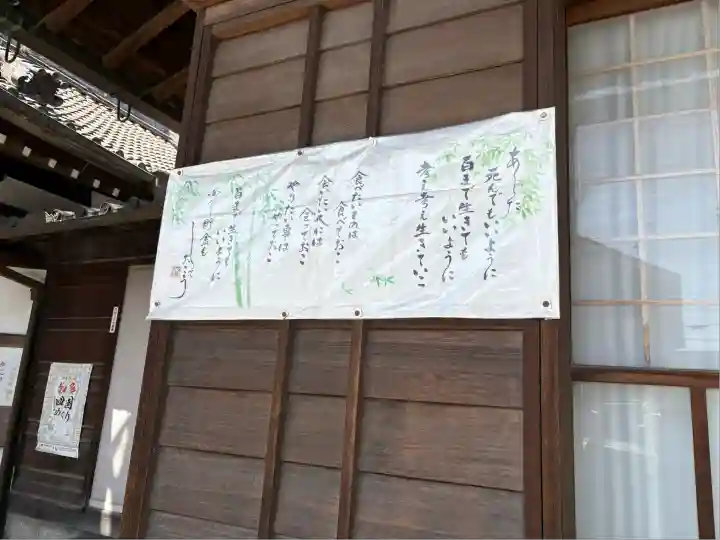 あした
死んでもいいように
百まで生きても
いいように
考え考え生きていこ
食べたいものは
食べておこ
会いたい人には
会っておこ
やりたい事は
やっておこ
百まで生きても
いいように
少し貯金も
しておこう
知多
四国
めぐり